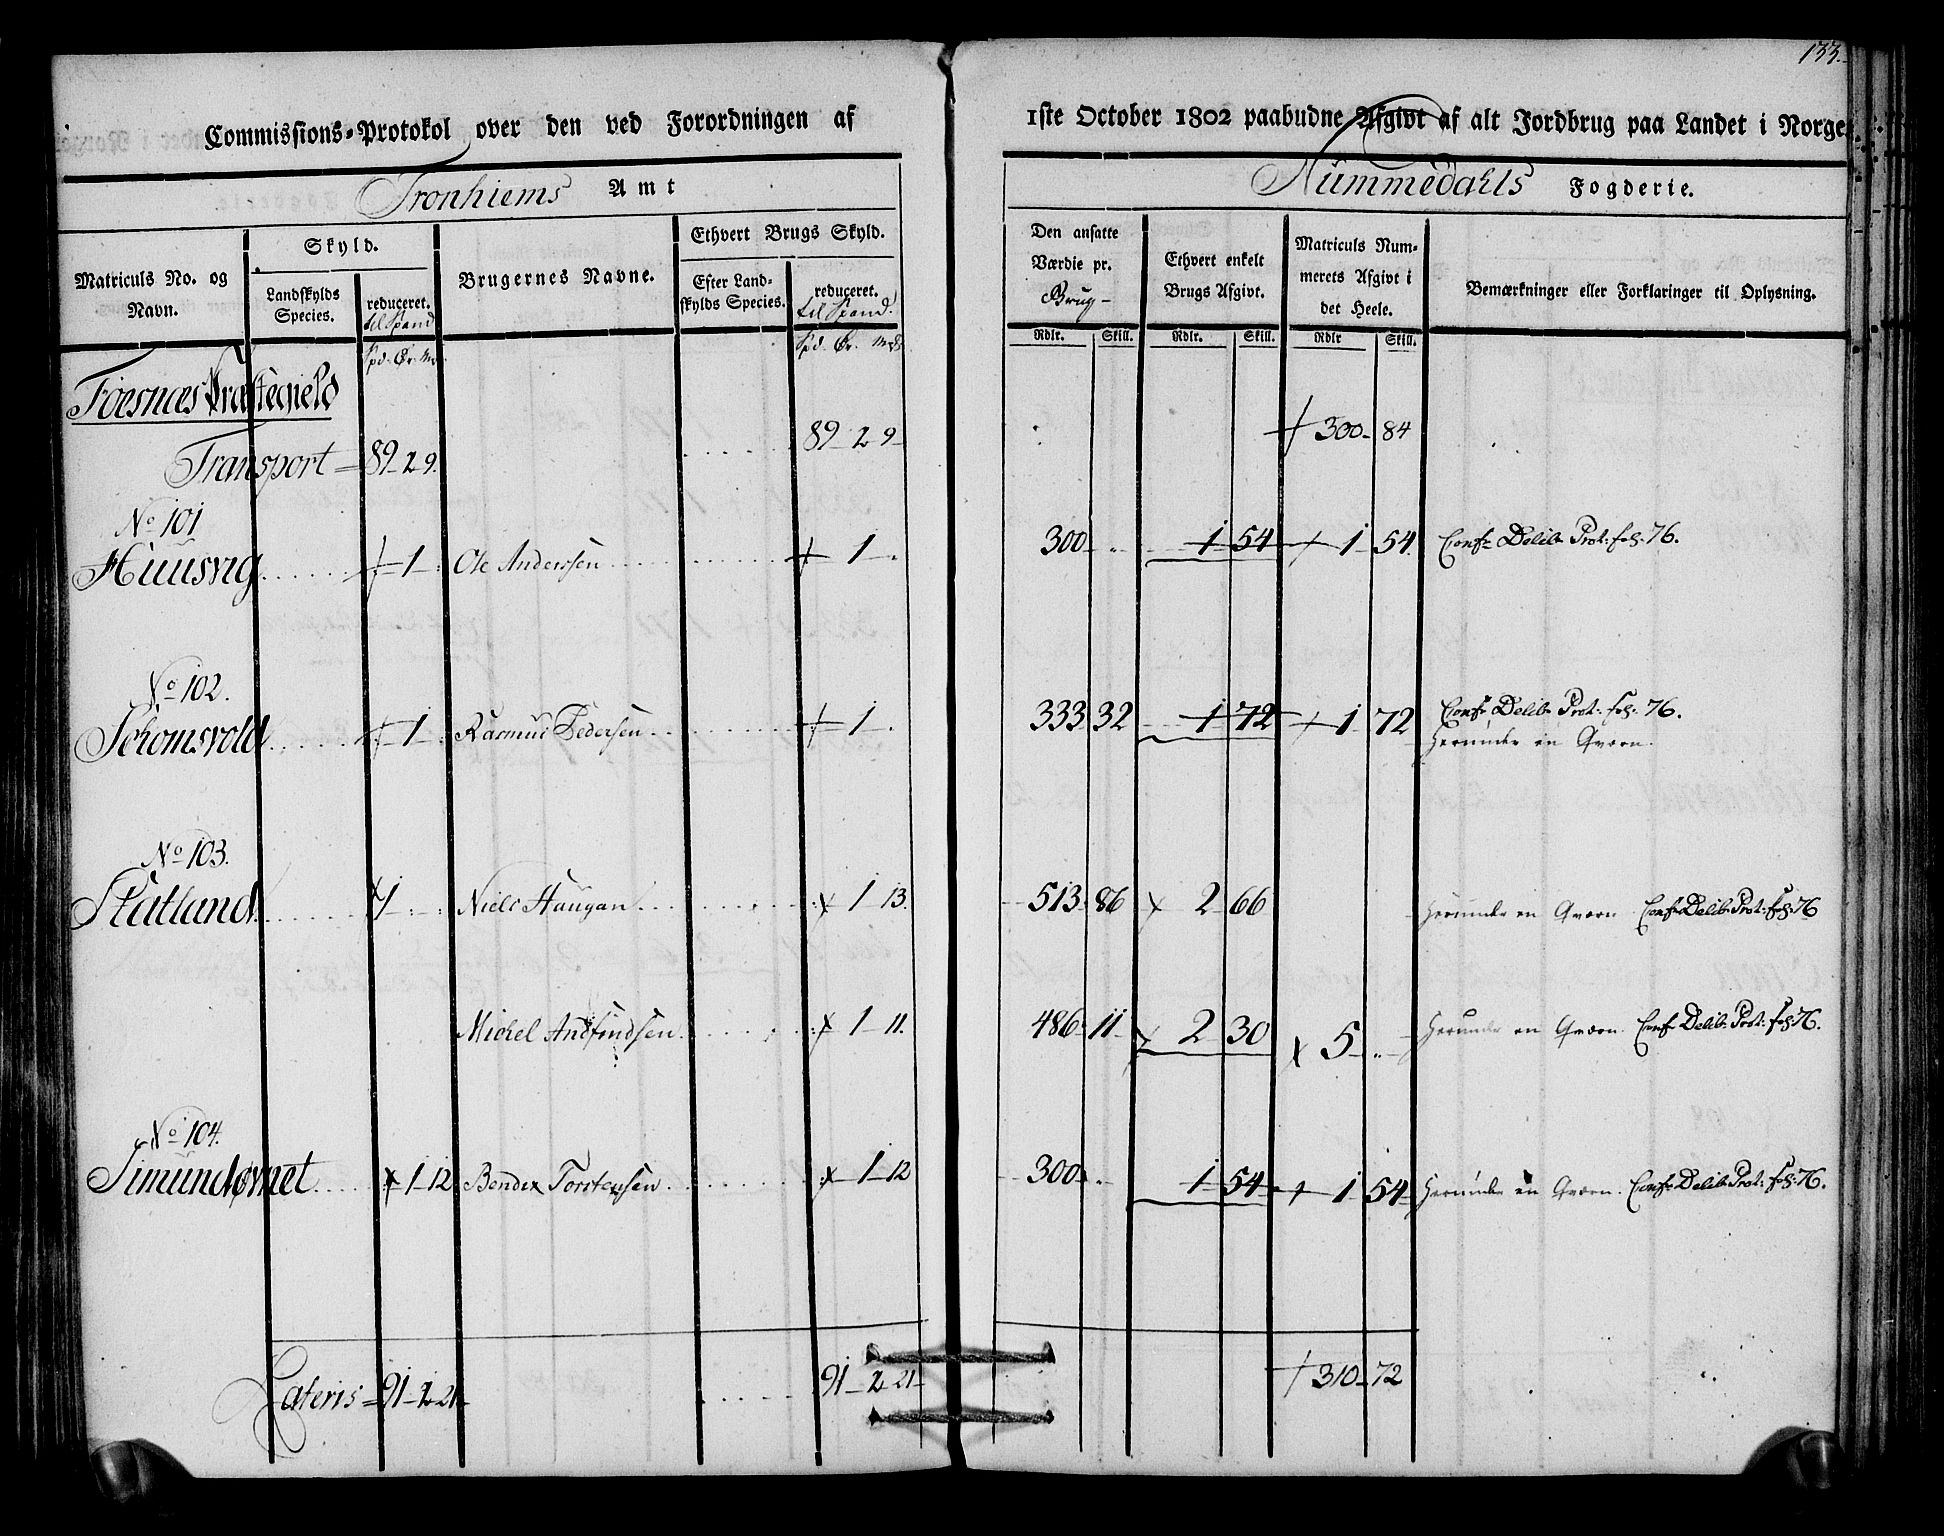 133.
Commissions-Protokol over den ved Forordningen af 1ste October 1802 paabudne Afgivt af alt Jordbrug paa Landet i Norge
Tronhiems Amt
Nummedahls Fogderie.
Matriculs No. og Navn.
Skyld.
Landskylds Species.
reduceret. til Spand
Brugernes Navne.
Ethvert Brugs Skyld.
Efter Landskylds Species.
reduceret. til Spand.
Den ansatte Værdie pr. Brug-
Ethvert enkelt Brugs Afgivt.
Matriculs Nummerets Afgivt i det Heele.
Bemærkninger eller Forklaringer til Oplysning.
Spd. Ör. Mk Spd. Ör. Mk Rdlr. Skill. Rdlr. Skill. Rdlr Skill.
Foesnæs Præstegield
Transport = 89 - 2 9. 89 - 2 9 300 - 84
No 101
Huusvig 1 Ole Anderssen 1 300 1 54 1 54 Conf. Delib. Prot: fol: 76.
No 102.
Schomsvold 1 Rasmus Pedersen 1 333 32 1 72 1 72 Conf. Delib. Prot: fol: 76.
Herunder en Qværn.
No 103.
Statland 1 Niels Haugan 1 13. 513 86 2 66 Herunder en Qværn. Conf. Delib. Prot: fol: 76
Michel Andfindsen 1 11. 486 11 2 30 5 Herunder en Qværn. Conf. Delib. Prot: fol: 76.
No 104.
Simundövnet 1 12 Bendix Torstensen 1 12 300 1 54 1 54 Herunder en Qværn. Conf. Delib. Prot: fol: 76.
Lateris = 91 - 2 - 21 91 - 2 - 21 310 - 72